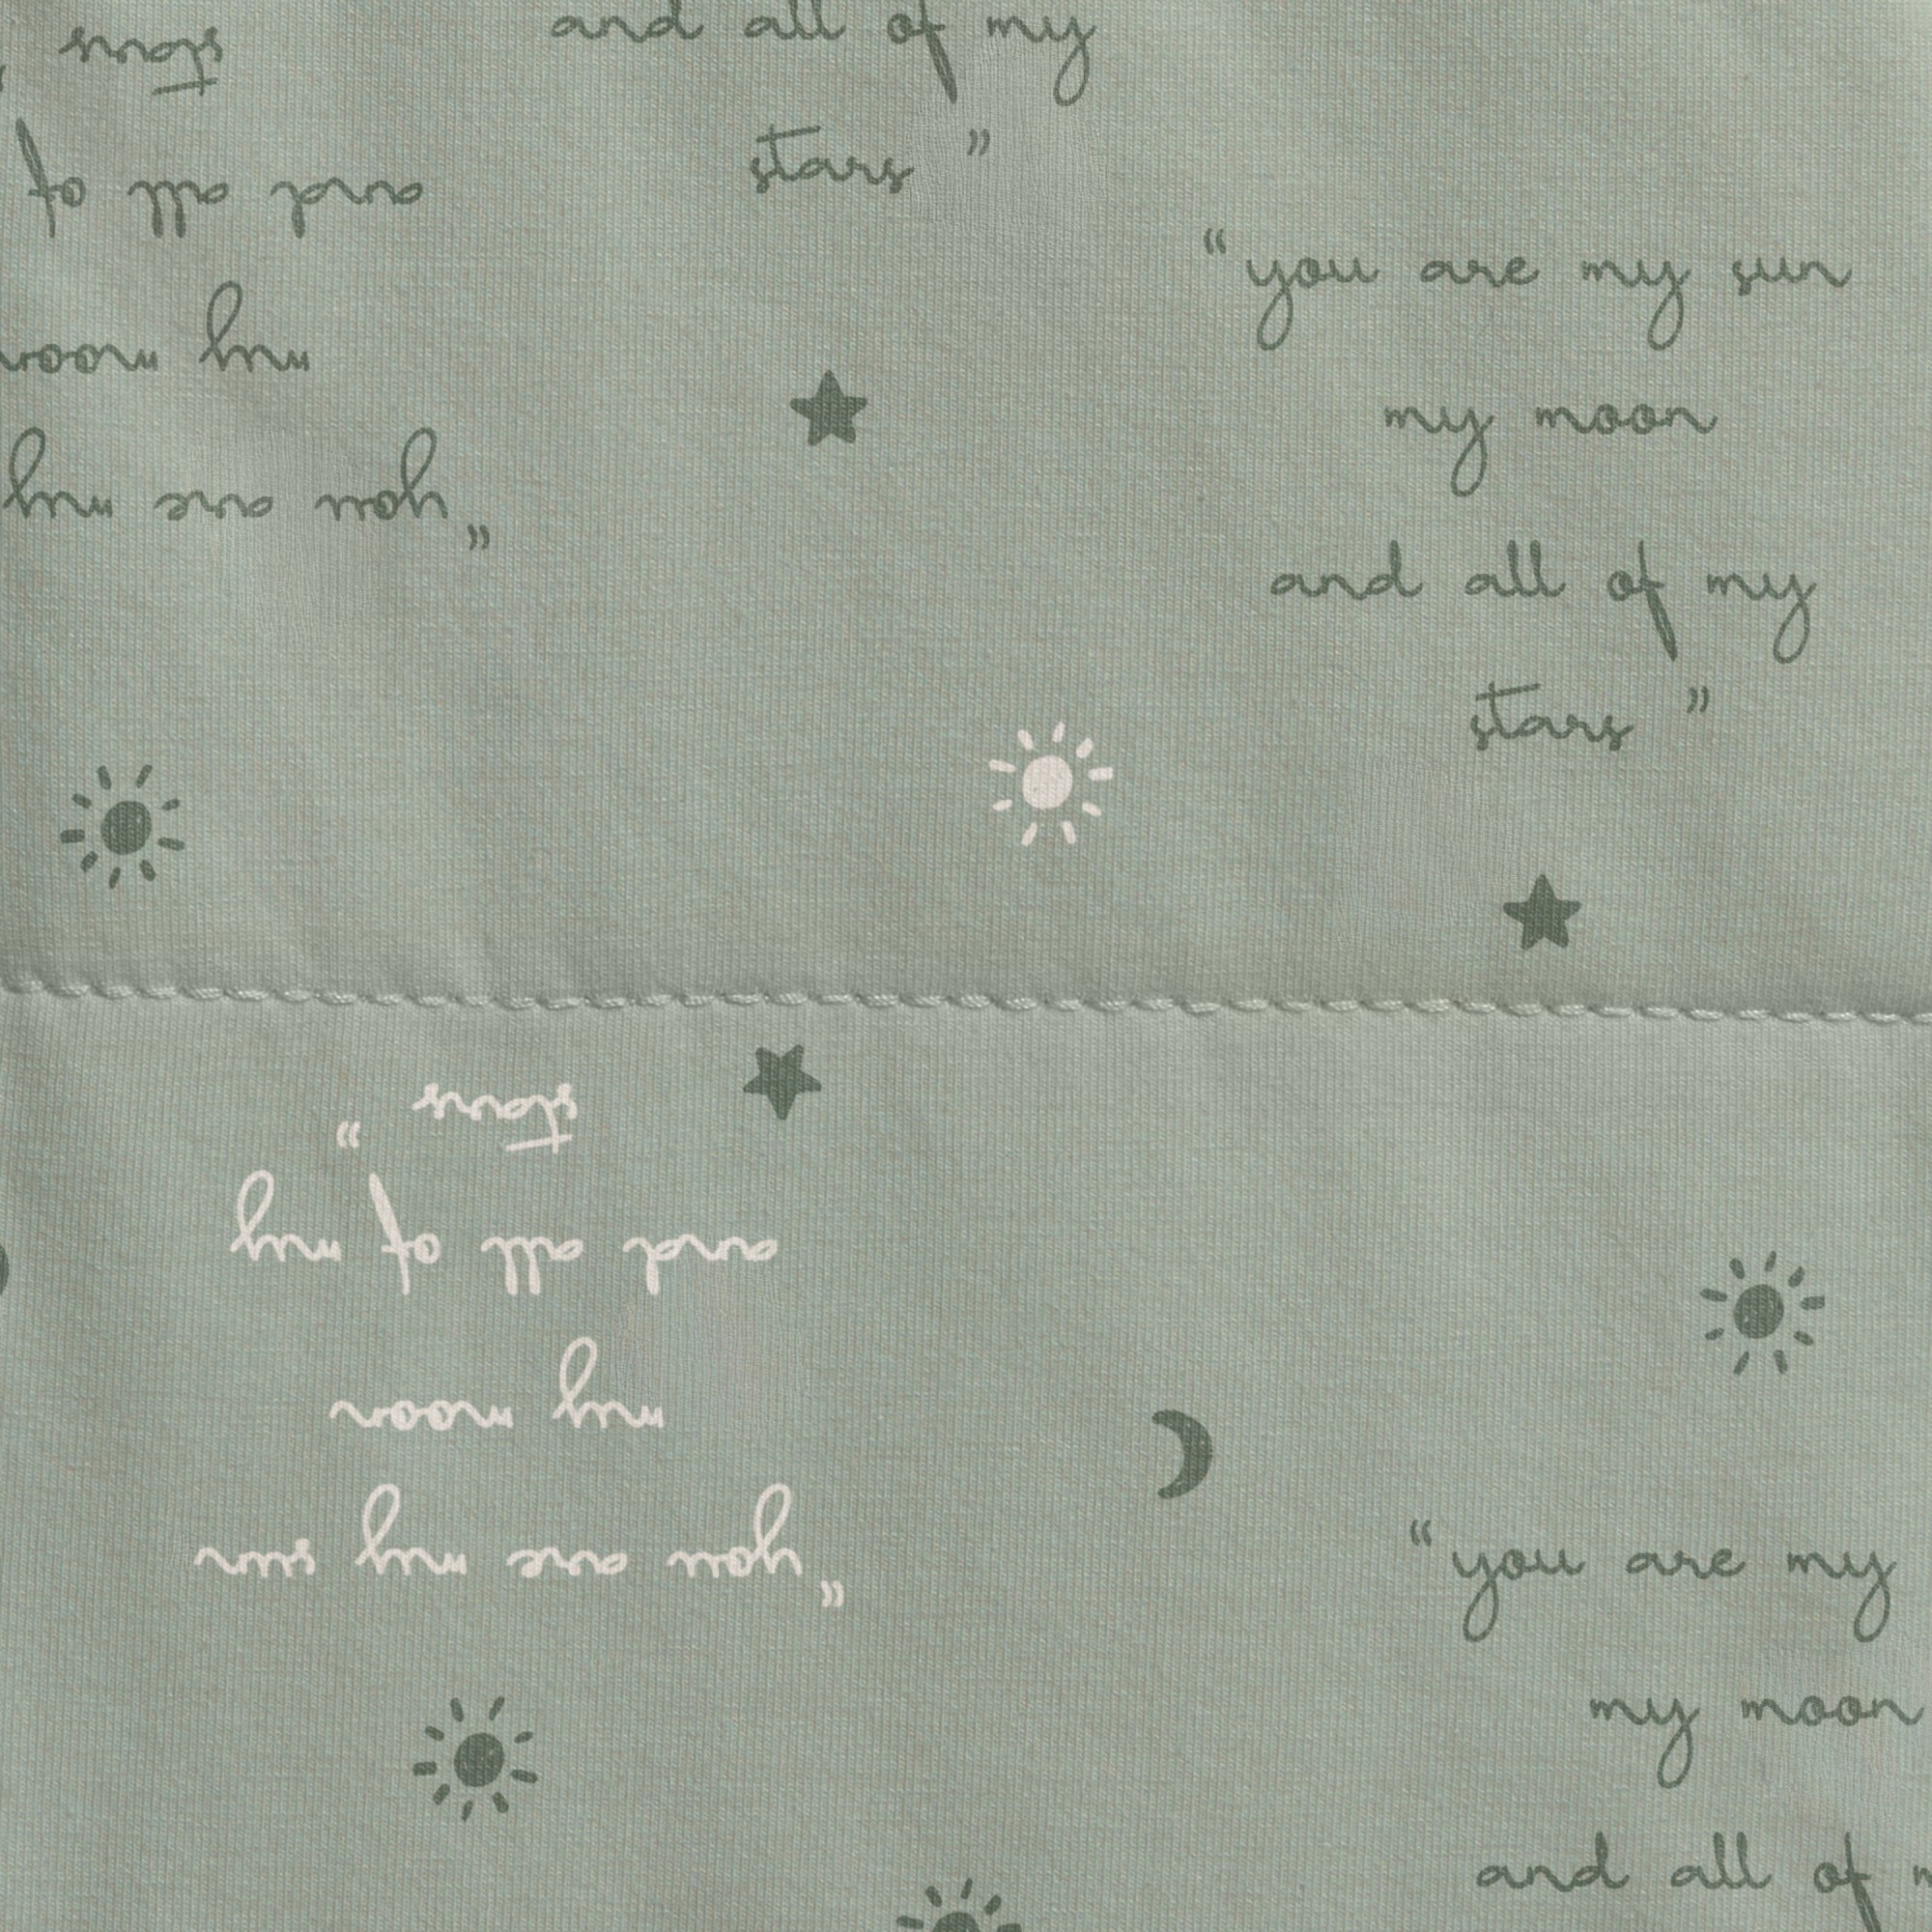 and all of my
stars ”
stars
and all of
my moon
“ you are my
“ you are my sun
my moon
and all of my
stars ”
“ you are my sun
my moon
and all of my
stars ”
“ you are my
my moon
and all of